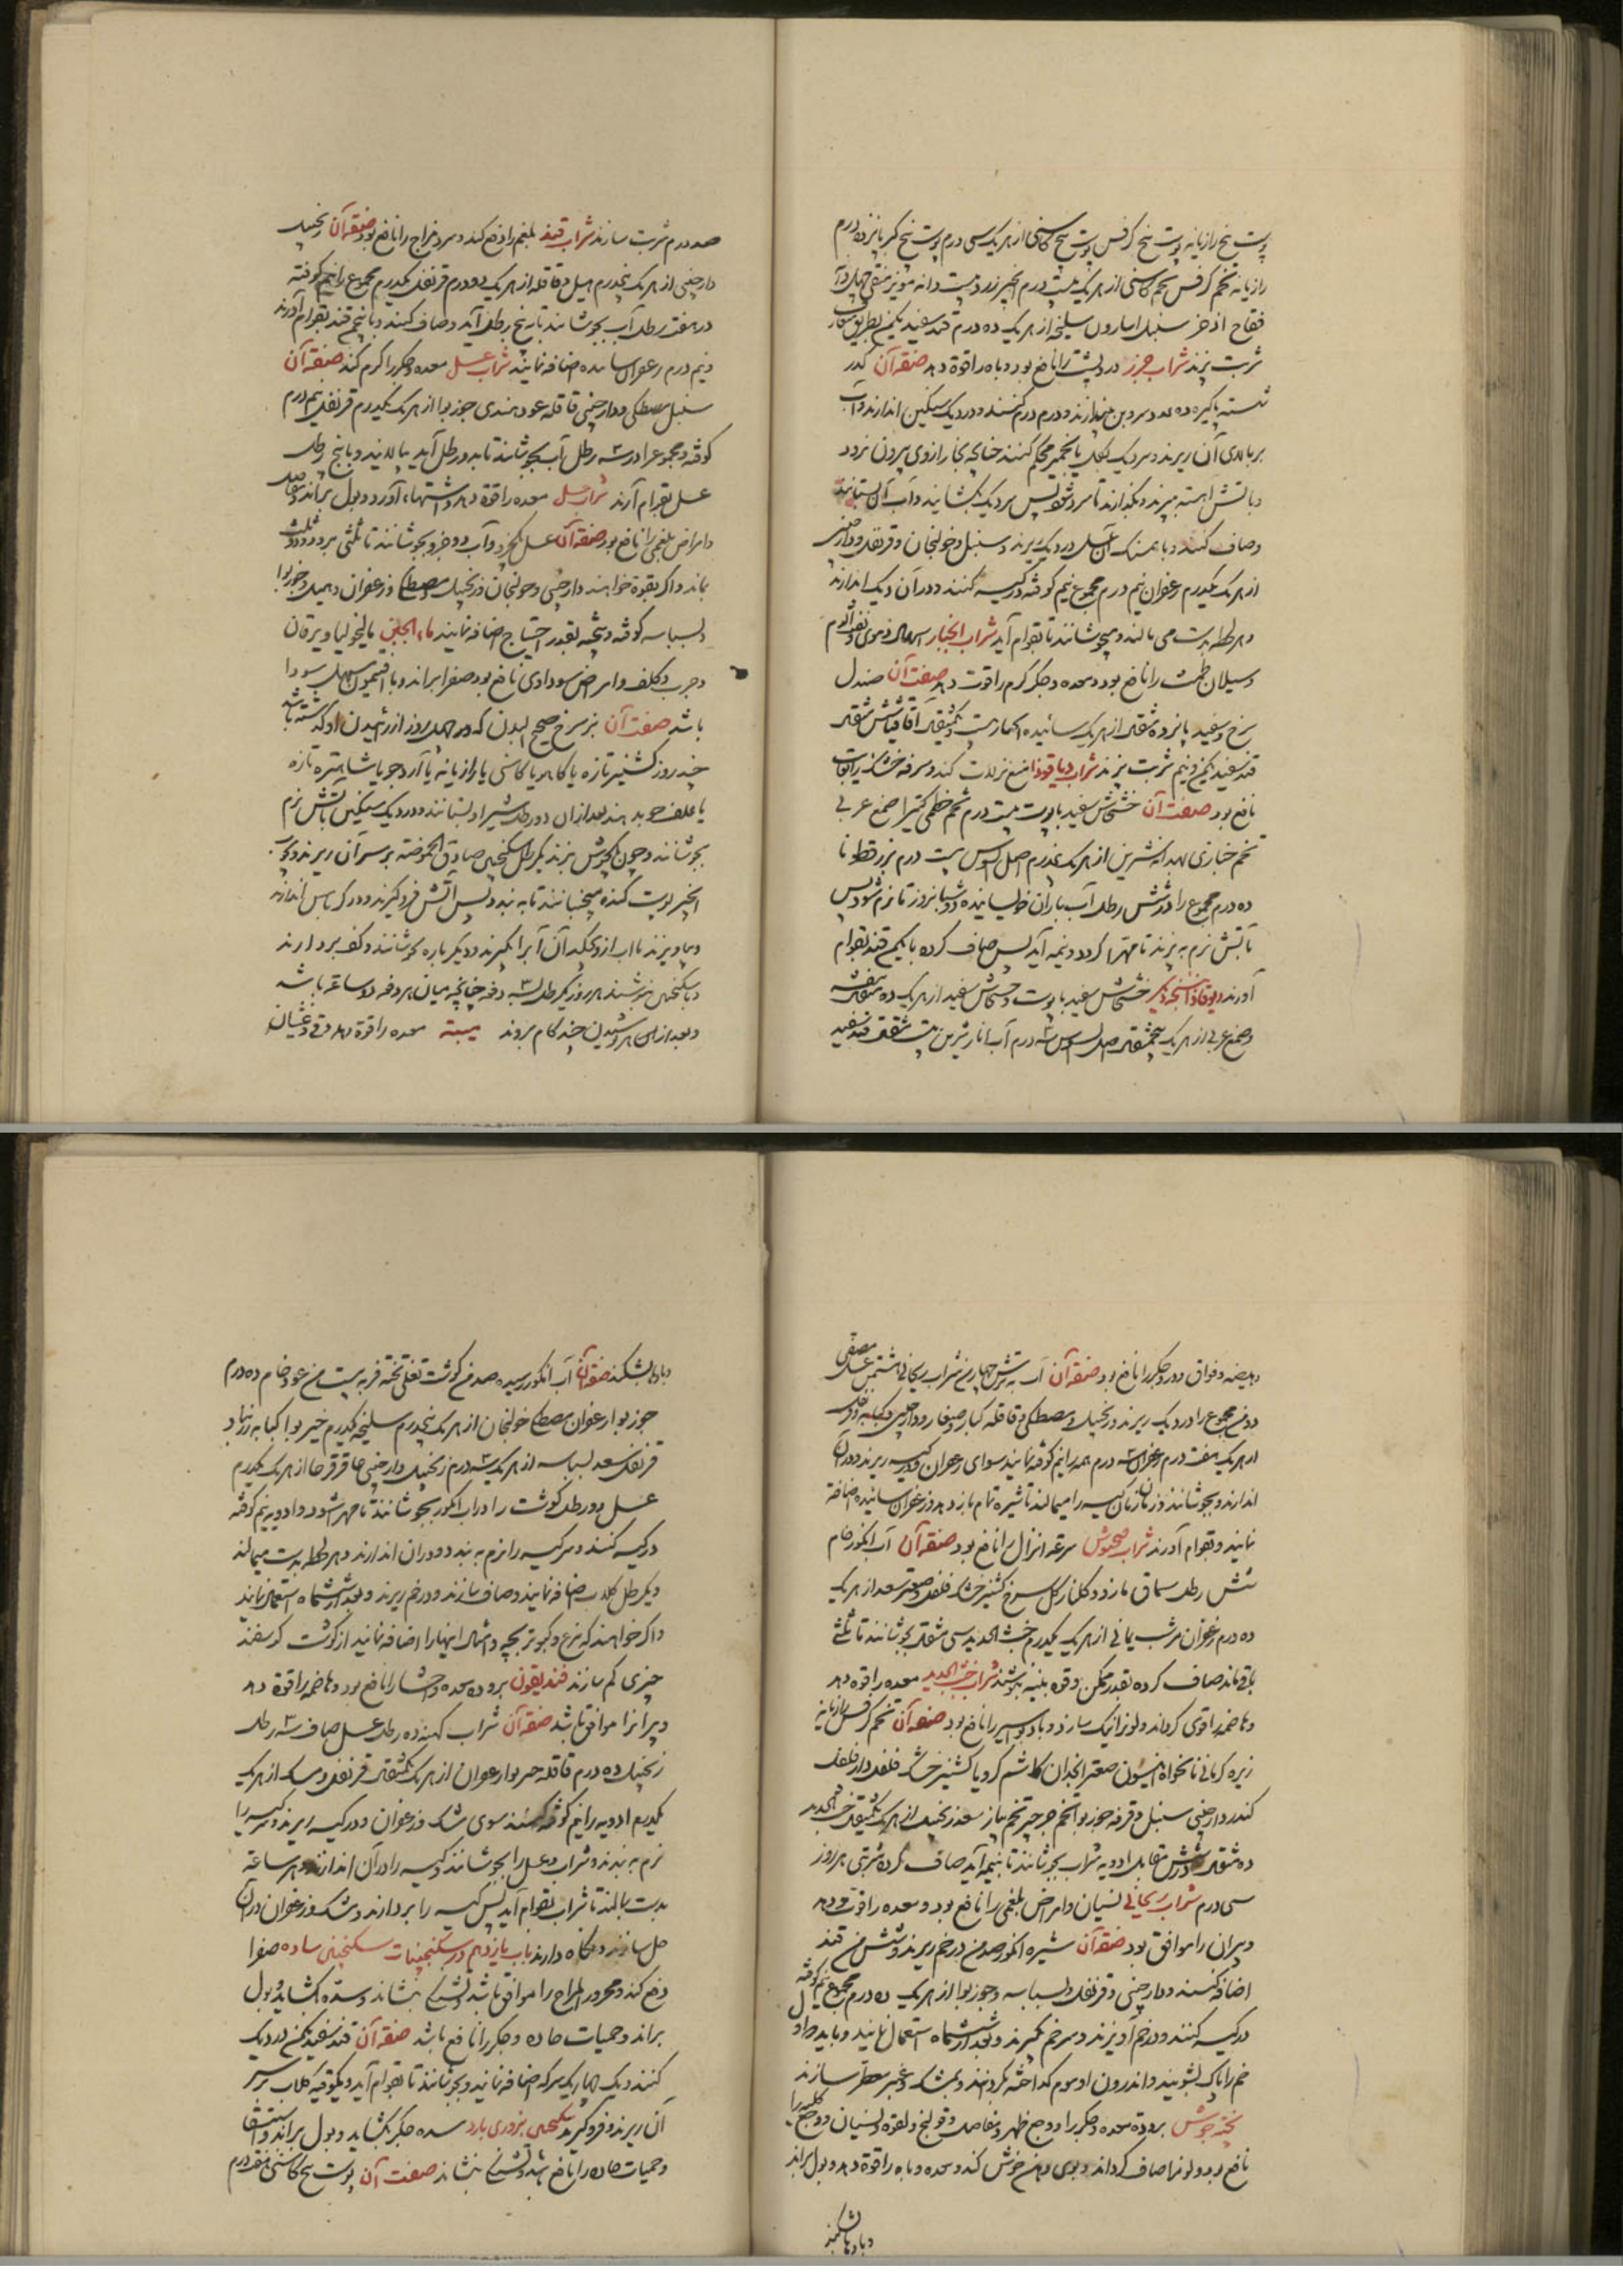 پوست بیخ رازیانه پوست بیخ کرفس پوست بیخ کاسنی از هر یک سی درم پوست بیخ کبر پانزده درم
رازیانه تخم کرفس تخم کاسنی از هر یک بیست درم انجیر زرد بیست دانه مویز منقی چهل درم
فقاح اذخر سنبل اسارون سلیخه از هر یک ده درم قند سفید یکمن بطریق متعارف
شربت پزند شراب جزر درد پشت را نافع بود و باه را قوة دهد صنعة آن گذر
شسته پاکیزه ده عدد سر و بن بیندازند و درم درم کنند و در دیک سنکین اندازند و آب
بر بالای آن ریزند و سر دیک بکل یا بخمیر محکم کنند چنانچه بخار از وی بیرون نرود
و باتش آهسته بپزند و بگذارند تا سرد شود پس سر دیک بکشایند و آب آن بستانند
و صاف کنند و با همسنک آن عسل در دیک ریزند و سنبل و خولنجان و قرنفل و دارچینی
از هر یک یکدرم زعفران نیم درم مجموع نیم کوفته در کیسه کنند و در آن دیک اندازند
و هر لحظه بدست می مالند و میجوشانند تا بقوام آید شراب انجبار اسهال دموی و نفث الدم
و سیلان طمث را نافع بود و معده و جکر کرم را قوت دهد صفت آن صندل
سرخ و سفید پانزده مثقال از هر یک سائیده انجبار بیست و یکمثقال آقاقیا شش مثقال
قند سفید یکمن و نیم شربت پزند شراب دیاقوذا منع نزلات کند و سرفه خشک را بغایت
نافع بود صفت آن خشخاش سفید با پوست بیست درم تخم خطمی کتیرا صمغ عربی
تخم خبازی بهدانه شیرین از هر یک پنجدرم اصل السوس بیست درم بزر قطونا
ده درم مجموع را در شش رطل آب باران خیسانیده دو شبانروز تا نرم شود پس
بآتش نرم به پزند تا مهرا کردد و بنیمه آید پس صاف کرده با یکمن قند بقوام
آورند دیاقوذا نسخه دیکر خشخاش سفید با پوست و خشخاش سفید از هر یک ده مثقال بنفشه
و صمغ عربی از هر یک پنجمثقال اصل السوس سه درم آب انار شیرین بیست مثقال قند سفید
صد درم شربت سازند شراب قند بلغم را دفع کند و سرد مزاج را نافع بود صنعة آن زنجبیل
دارچینی از هر یک پنجدرم هیل و قاقله از هر یک دو درم قرنفل یکدرم مجموع را نیم کوفته
در هفت رطل آب بجوشانند تا به پنج رطل آید و صاف کنند و با نیم من قند بقوام آورند
و نیم درم زعفران سائیده اضافه نمایند شراب عسل معده و جکر را کرم کند صنعة آن
سنبل مصطکی و دارچینی قاقله عود هندی جوز بوا از هر یک یکدرم قرنفل نیم درم
کوفته و مجموع را در سه رطل آب بجوشانند تا به دو رطل آید بپالایند و با پنج رطل
عسل بقوام آرند شراب عسل معده را قوة دهد و اشتهاء آورد و بول براند و مفاصل
و امراض بلغمی را نافع بود صنعة آن عسل یکجزو و آب دو جزو بجوشانند تا ثلثی برود و دو ثلث
بماند و اگر بقوة خواهند دارچینی و خولنجان و زنجبیل و مصطکی و زعفران و هیل و جوز بوا
و بسباسه کوفته و بیخته بقدر احتیاج اضافه نمایند ماء الجبن مالیخولیا و یرقان
و جرب و کلف و امراض سوداوی را نافع بود صفرا براند و با افتیمون مسهل سودا
باشد صفت آن بز سرخ صحیح البدن که چهل روز از زائیدن او گذشته باشد
چند روز کشنیز تازه یا کاهو یا کاسنی یا رازیانه یا آرد جو یا شاهتره تازه
یا علف جو بدهند بعد از آن دو رطل شیر او بستانند و در دیک سنکین باتش نرم
بجوشانند و چون بجوش بزند یکرطل سکنجبین صادق الحموضه بر سر آن ریزند و بچوب
انجیر پوست کنده میجنبانند تا به بندد پس از آتش فرو کیرند و در کرباس اندازند
و بیاویزند تا آب از وی بچکد آن آب را بکیرند و دیکر باره بجوشانند و کف بردارند
و با سکنجبین بنوشند هر روز یکرطل بسه دفعه چنانچه میان هر دفعه دو ساعة باشد
و بعد از هر نوشیدن چند کام بروند میبه معده را قوة دهد و قی و غثیان
و هیضه و فواق و درد جکر را نافع بود صنعة آن آب به ترش چهار من شراب ریحانی هشت من عسل مصفی
دو من مجموع را در دیک ریزند و زنجبیل و مصطکی و قاقله کبار و صغار و دارچینی و کبابه و قرنفل
از هر یک هفت درم زعفران سه درم همه را نیم کوفته نمایند سوای زعفران و در کیسه ریزند و در آن
اندازند و بجوشانند و زمان زمان کیسه را میمالند تا شیره تمام باز دهد و زعفران سائیده اضافه
نمایند و بقوام آورند شراب صحبوش سرعة انزال را نافع بود صنعة آن آب انکور خام
شش رطل سماق مازو و کلنار کل سرخ کشنیز خشک فلفل و صعتر سعد از هر یک
ده درم زعفران شب یمانی از هر یک یکدرم خبث الحدید سی مثقال بجوشانند تا ثلثی
باقی ماند صاف کرده بقدر ممکن و قوه بنیه بنوشند شراب خبث الحدید معده را قوه دهد
و هاضمه را قوی کرداند و لون را نیک سازد و باد بواسیر را نافع بود صنعة آن تخم کرفس رازیانه
زیره کرمانی نانخواه انیسون صعتر انجدان کاشم کرویا کشنیز خشک فلفل دارفلفل
کندر دارچینی سنبل و قرفه جوز بوا تخم جرجیر تخم پیاز سعد زنجبیل از هر یک یکمثقال خبث الحدید
ده مثقال در شش مقابل ادویه شراب بجوشانند تا بنیمه آید صاف کرده شربتی هر روز
سی درم شراب ریحانی نسیان و امراض بلغمی را نافع بود و معده را قوت دهد
و پیران را موافق بود صنعة آن شیره انکور صد من در خم ریزند و شش من قند
اضافه کنند و دارچینی و قرنفل و بسباسه و جوز بوا از هر یک ده درم مجموع نیم کوفته
در کیسه کنند و در خم آویزند و سر خم بکیرند و بعد از ششماه استعمال نمایند و باید که اول
خم را پاک بشویند و اندرون او موم کداخته کردانند و بمشک و عنبر معطر سازند
پخته جوش برودة معده و جکر را و وجع ظهر و مفاصل و قولنج و لقوه و نسیان و وجع کلیه را
نافع بود و لون را صاف کرداند و بوی دهن خوش کند و معده و باه را قوة دهد و بول براند
و بادها بشکند
و بادها بشکند صنعة آن آب انکور رسیده صد من کوشت تغلی پخته فربه بیست من عود خام ده درم
جوز بوا زعفران مصطکی خولنجان از هر یک پنجدرم سلیخه یکدرم خیر بوا کبابه زرنباد
قرنفل سعد بسباسه از هر یک سه درم زنجبیل دارچینی عاقرقرحا از هر یک یکدرم
عسل دو رطل کوشت را در آب انکور بجوشانند تا مهرا شود و ادویه نیم کوفته
در کیسه کنند و سر کیسه را نرم به بندند و در آن اندازند و هر لحظه بدست میمالند
و یکرطل کلاب اضافه نمایند و صاف سازند و در خم ریزند و بعد از ششماه استعمال نمایند
و اگر خواهند که مرغ و کبوتر بچه و امثال اینها را اضافه نمایند از کوشت کوسفند
چیزی کم سازند فندیقون برودة معده و احشا را نافع بود و هاضمه را قوة دهد
و پیرانرا موافق باشد صنعة آن شراب کهنه ده رطل عسل صاف سه رطل
زنجبیل ده درم قاقله جوز بوا زعفران از هر یک یکمثقال قرنفل و مسک از هر یک
یکدرم ادویه را نیم کوفته کنند سوی مشک و زعفران و در کیسه ریزند و سر کیسه را
نرم به بندند و شراب و عسل را بجوشانند و کیسه را در آن اندازند و هر ساعة
بدست بمالند تا شراب بقوام آید پس کیسه را بردارند و مشک و زعفران در آن
حل سازند و نگاه دارند باب یازدهم در سکنجبینات سکنجبین ساده صفرا
دفع کند و محرور المزاج را موافق باشد و تشنکی بنشاند و سده بکشاید و بول
براند و حمیات حاده و جکر را نافع باشد صنعة آن قند سفید یکمن در دیک
کنند و یک چهار یک سرکه اضافه نمایند و بجوشانند تا بقوام آید و یکوقیه کلاب بر سر
آن ریزند و فرو کیرند سکنجبین بزوری بارد سده جکر بکشاید و بول براند و استسقا
و حمیات حاده را نافع باشد و تشنکی بنشاند صفت آن پوست بیخ کاسنی هفت درم